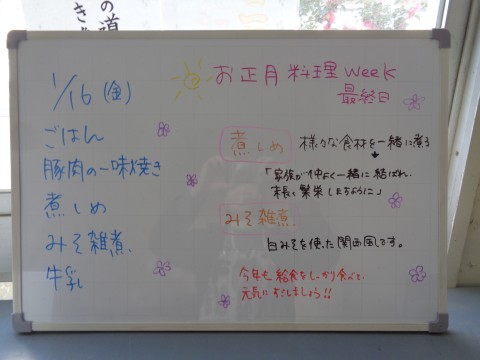 の道
1/16(金)
ごはん
豚肉の一味焼き
煮しめ
みそ雑煮
牛乳
お正月料理week
最終日
煮しめ
様々な食材を一緒に煮る
「家族が仲よく一緒に結ばれ、
末長く繁栄しますように」
みそ雑煮
白みそを使った関西風です。
今年も給食をしっかり食べて、
元気にすごしましょう!!